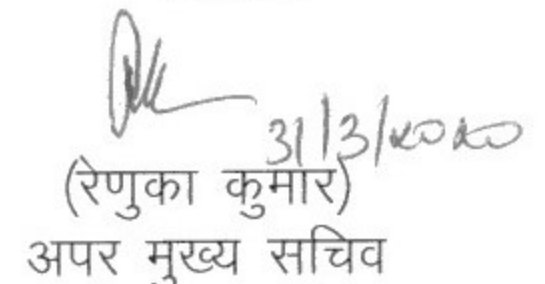 31/3/2020
(रेणुका कुमार)
अपर मुख्य सचिव